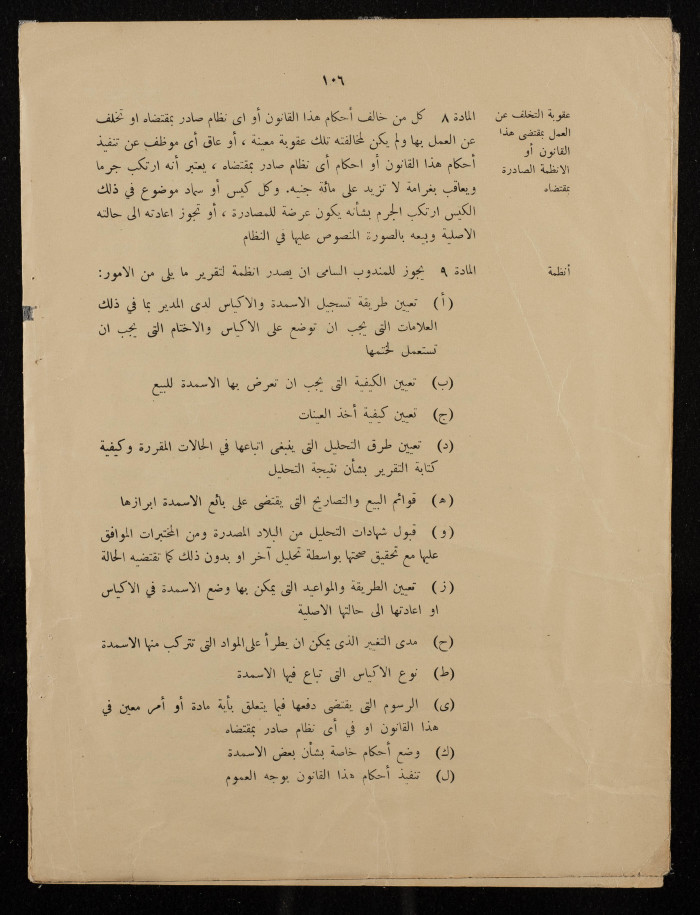 ١٠٦
عقوبة التخلف عن
العمل بمقتضى هذا
القانون أو
الانظمة الصادرة
بمقتضاه
المادة ٨ كل من خالف أحكام هذا القانون أو اى نظام صادر بمقتضاه او تخلف
عن العمل بها ولم يكن لمخالفته تلك عقوبة معينة ، أو عاق أى موظف عن تنفيذ
أحكام هذا القانون أو احكام أى نظام صادر بمقتضاه ، يعتبر أنه ارتكب جرما
ويعاقب بغرامة لا تزيد على مائة جنيه. وكل كيس أو سماد موضوع في ذلك
الكيس ارتكب الجرم بشأنه يكون عرضة للمصادرة ، أو تجوز اعادته الى حالته
الاصلية وبيعه بالصورة المنصوص عليها في النظام
أنظمة
المادة ٩ يجوز للمندوب السامى ان يصدر انظمة لتقرير ما يلى من الامور:
(أ) تعيين طريقة تسجيل الاسمدة والاكياس لدى المدير بما في ذلك
العلامات التى يجب ان توضع على الاكياس والاختام التى يجب ان
تستعمل لختمها
(ب) تعيين الكيفية التى يجب ان تعرض بها الاسمدة للبيع
(ج) تعيين كيفية أخذ العينات
(د) تعيين طرق التحليل التى ينبغى اتباعها في الحالات المقررة وكيفية
كتابة التقرير بشأن نتيجة التحليل
(ه) قوائم البيع والتصاريح التى يقتضى على بائع الاسمدة ابرازها
(و) قبول شهادات التحليل من البلاد المصدرة ومن المختبرات الموافق
عليها مع تحقيق صحتها بواسطة تحليل آخر او بدون ذلك كما تقتضيه الحالة
(ز) تعيين الطريقة والمواعيد التى يمكن بها وضع الاسمدة في الاكياس
او اعادتها الى حالتها الاصلية
(ح) مدى التغيير الذى يمكن ان يطرأ على المواد التى تتركب منها الاسمدة
(ط) نوع الاكياس التى تباع فيها الاسمدة
(ى) الرسوم التى يقتضى دفعها فيما يتعلق بأية مادة أو أمر معين في
هذا القانون او في أى نظام صادر بمقتضاه
(ك) وضع أحكام خاصة بشأن بعض الاسمدة
(ل) تنفيذ أحكام هذا القانون بوجه العموم